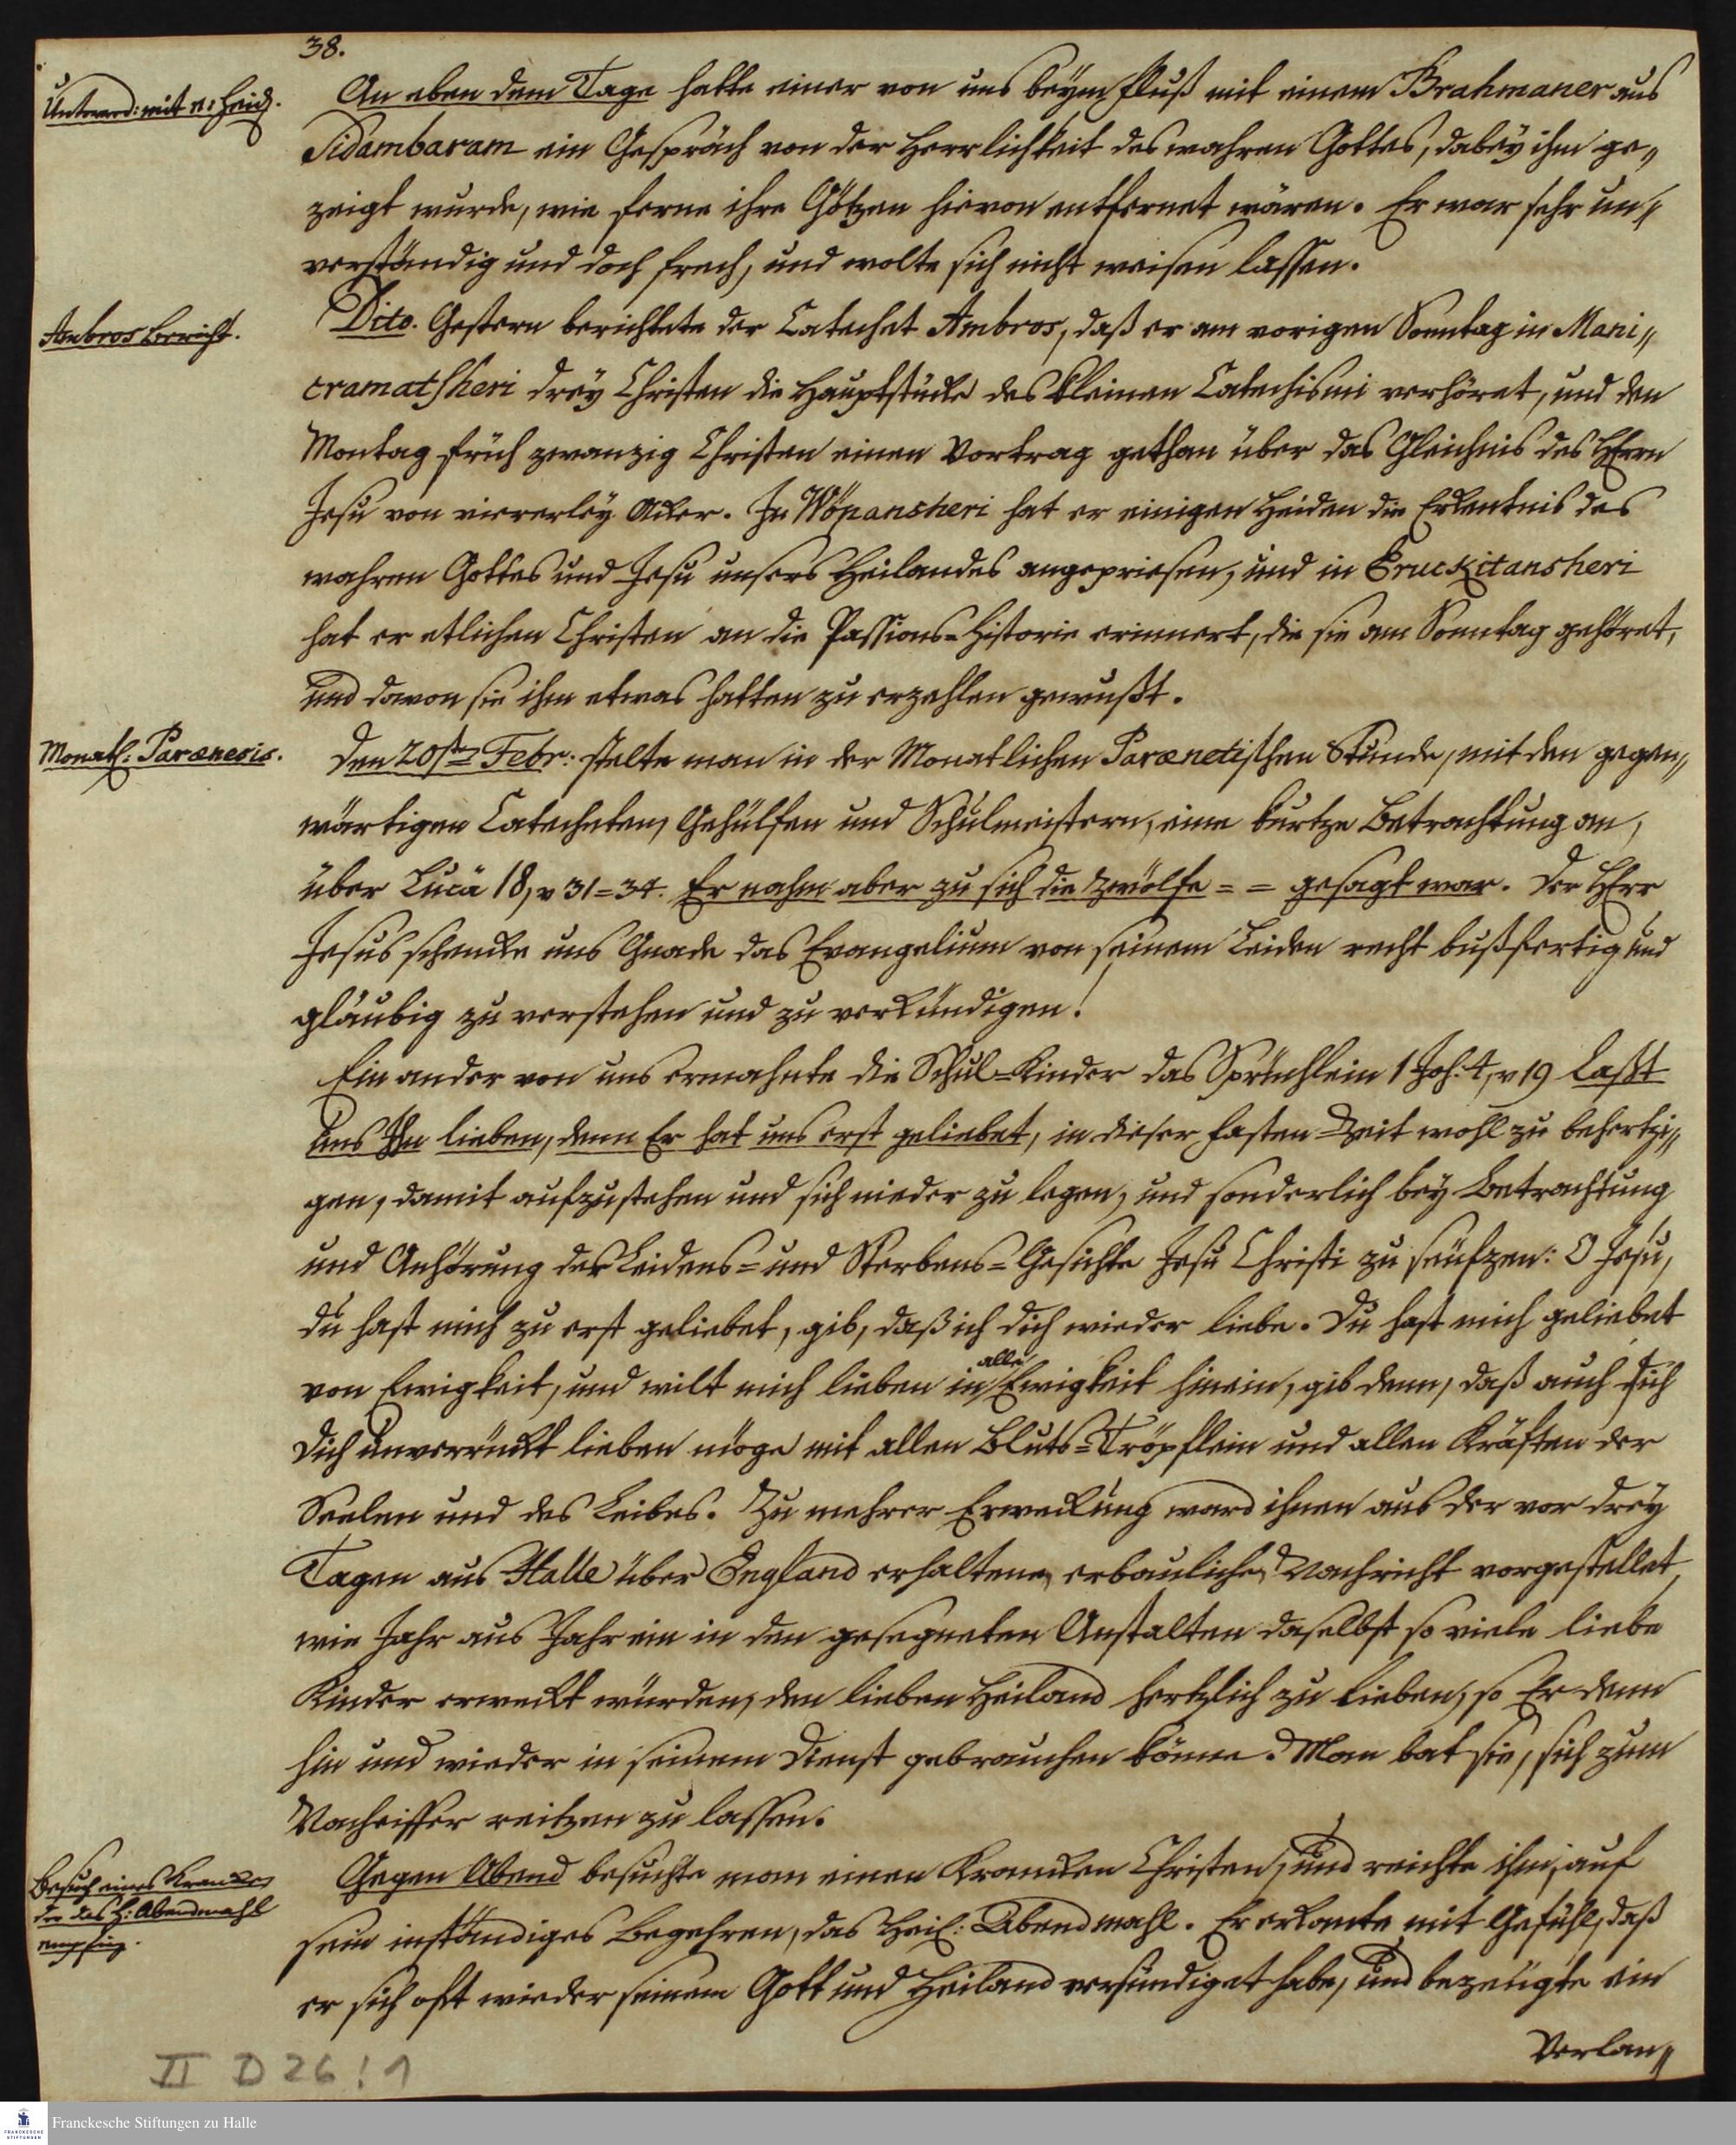 38.
Unterred: mit e: Heid.
An eben dem Tage hatte einer von uns beÿm Fluß mit einem Brahmaner aus
Sidambaram ein Gespräch von der Herrlichkeit des wahren Gottes, dabeÿ ihm ge„
zeigt wurde, wie ferne ihre Götzen hievon entfernet wären. Er war sehr un„
verständig und doch frech, und wolte sich nicht weisen lassen.
Ambros Bericht.
Dito. Gestern berichtete der Catechet Ambros, daß er am vorigen Sonntag in Mani„
cramatsheri dreÿ Christen die Hauptstücke des kleinen Catechismi verhöret, und den
Montag früh zwanzig Christen einen Vortrag gethan über das Gleichnis des HErrn
Jesu von viererleÿ Acker. In Wöpansheri hat er einigen Heiden die Erkentnis des
wahren Gottes und Jesu unsers Heilandes angepriesen, und in Eruckitansheri
hat er etlichen Christen an die Passions-Historie erinnert, die sie am Sonntag gehöret,
und davon sie ihm etwas hatten zu erzehlen gewußt.
Monatl: Parænesis.
Den 20sten Febr: stelte man in der Monatlichen Parænetischen Stunde, mit den gegen„
wärtigen Catecheten, Gehülfen und Schulmeistern, eine kurtze Betrachtung an,
über Lucä 18, v 31=34. Er nahm aber zu sich die Zwölfe = = gesagt war. Der HErr
Jesus schencke uns Gnade das Evangelium von seinem Leiden recht bußfertig und
gläubig zu verstehen und zu verkündigen!
Ein ander von uns ermahnte die Schul-Kinder das Sprüchlein 1 Joh: 4, v 19 Laßt
uns Ihn lieben, denn Er hat uns erst geliebet, in dieser Fasten-Zeit wohl zu behertzi„
gen, damit aufzustehen und sich nieder zu legen, und sonderlich beÿ Betrachtung
und Anhörung der Leidens= und Sterbens=Gesichte Jesu Christi zu seufzen: O Jesu,
du hast mich zu erst geliebet, gib, daß ich dich wieder liebe. Du hast mich geliebet
von Ewigkeit, und wilt mich lieben in alle Ewigkeit hinein, gib denn, daß auch ich
dich unverrückt lieben möge mit allen Bluts=Tröpflein und allen Kräften der
Seelen und des Leibes. Zu mehrer Erweckung ward ihnen aus der vor dreÿ
Tagen aus Halle über England erhaltenen erbaulichen Nachricht vorgestellet,
wie Jahr aus Jahr ein in den gesegneten Anstalten daselbst so viele liebe
Kinder erweckt würden, den lieben Heiland hertzlich zu lieben, so Er denn
hin und wieder in seinem Dienst gebrauchen könne. Man bat sie, sich zum
Nacheiffer reitzen zu lassen.
Besuch eines Krancken
der das H: Abendmahl
empfing.
Gegen Abend besuchte man einen Krancken Christen, und reichte ihm, auf
sein inständiges Begehren, das Heil: Abendmahl. Er erkante mit Gefühl, daß
er sich oft wieder seinem Gott und Heiland versündiget habe, und bezeugte ein
Verlan„
II D 26 : 1
Franckesche Stiftungen zu Halle
FRANCKESCHE
STIFTUNGEN